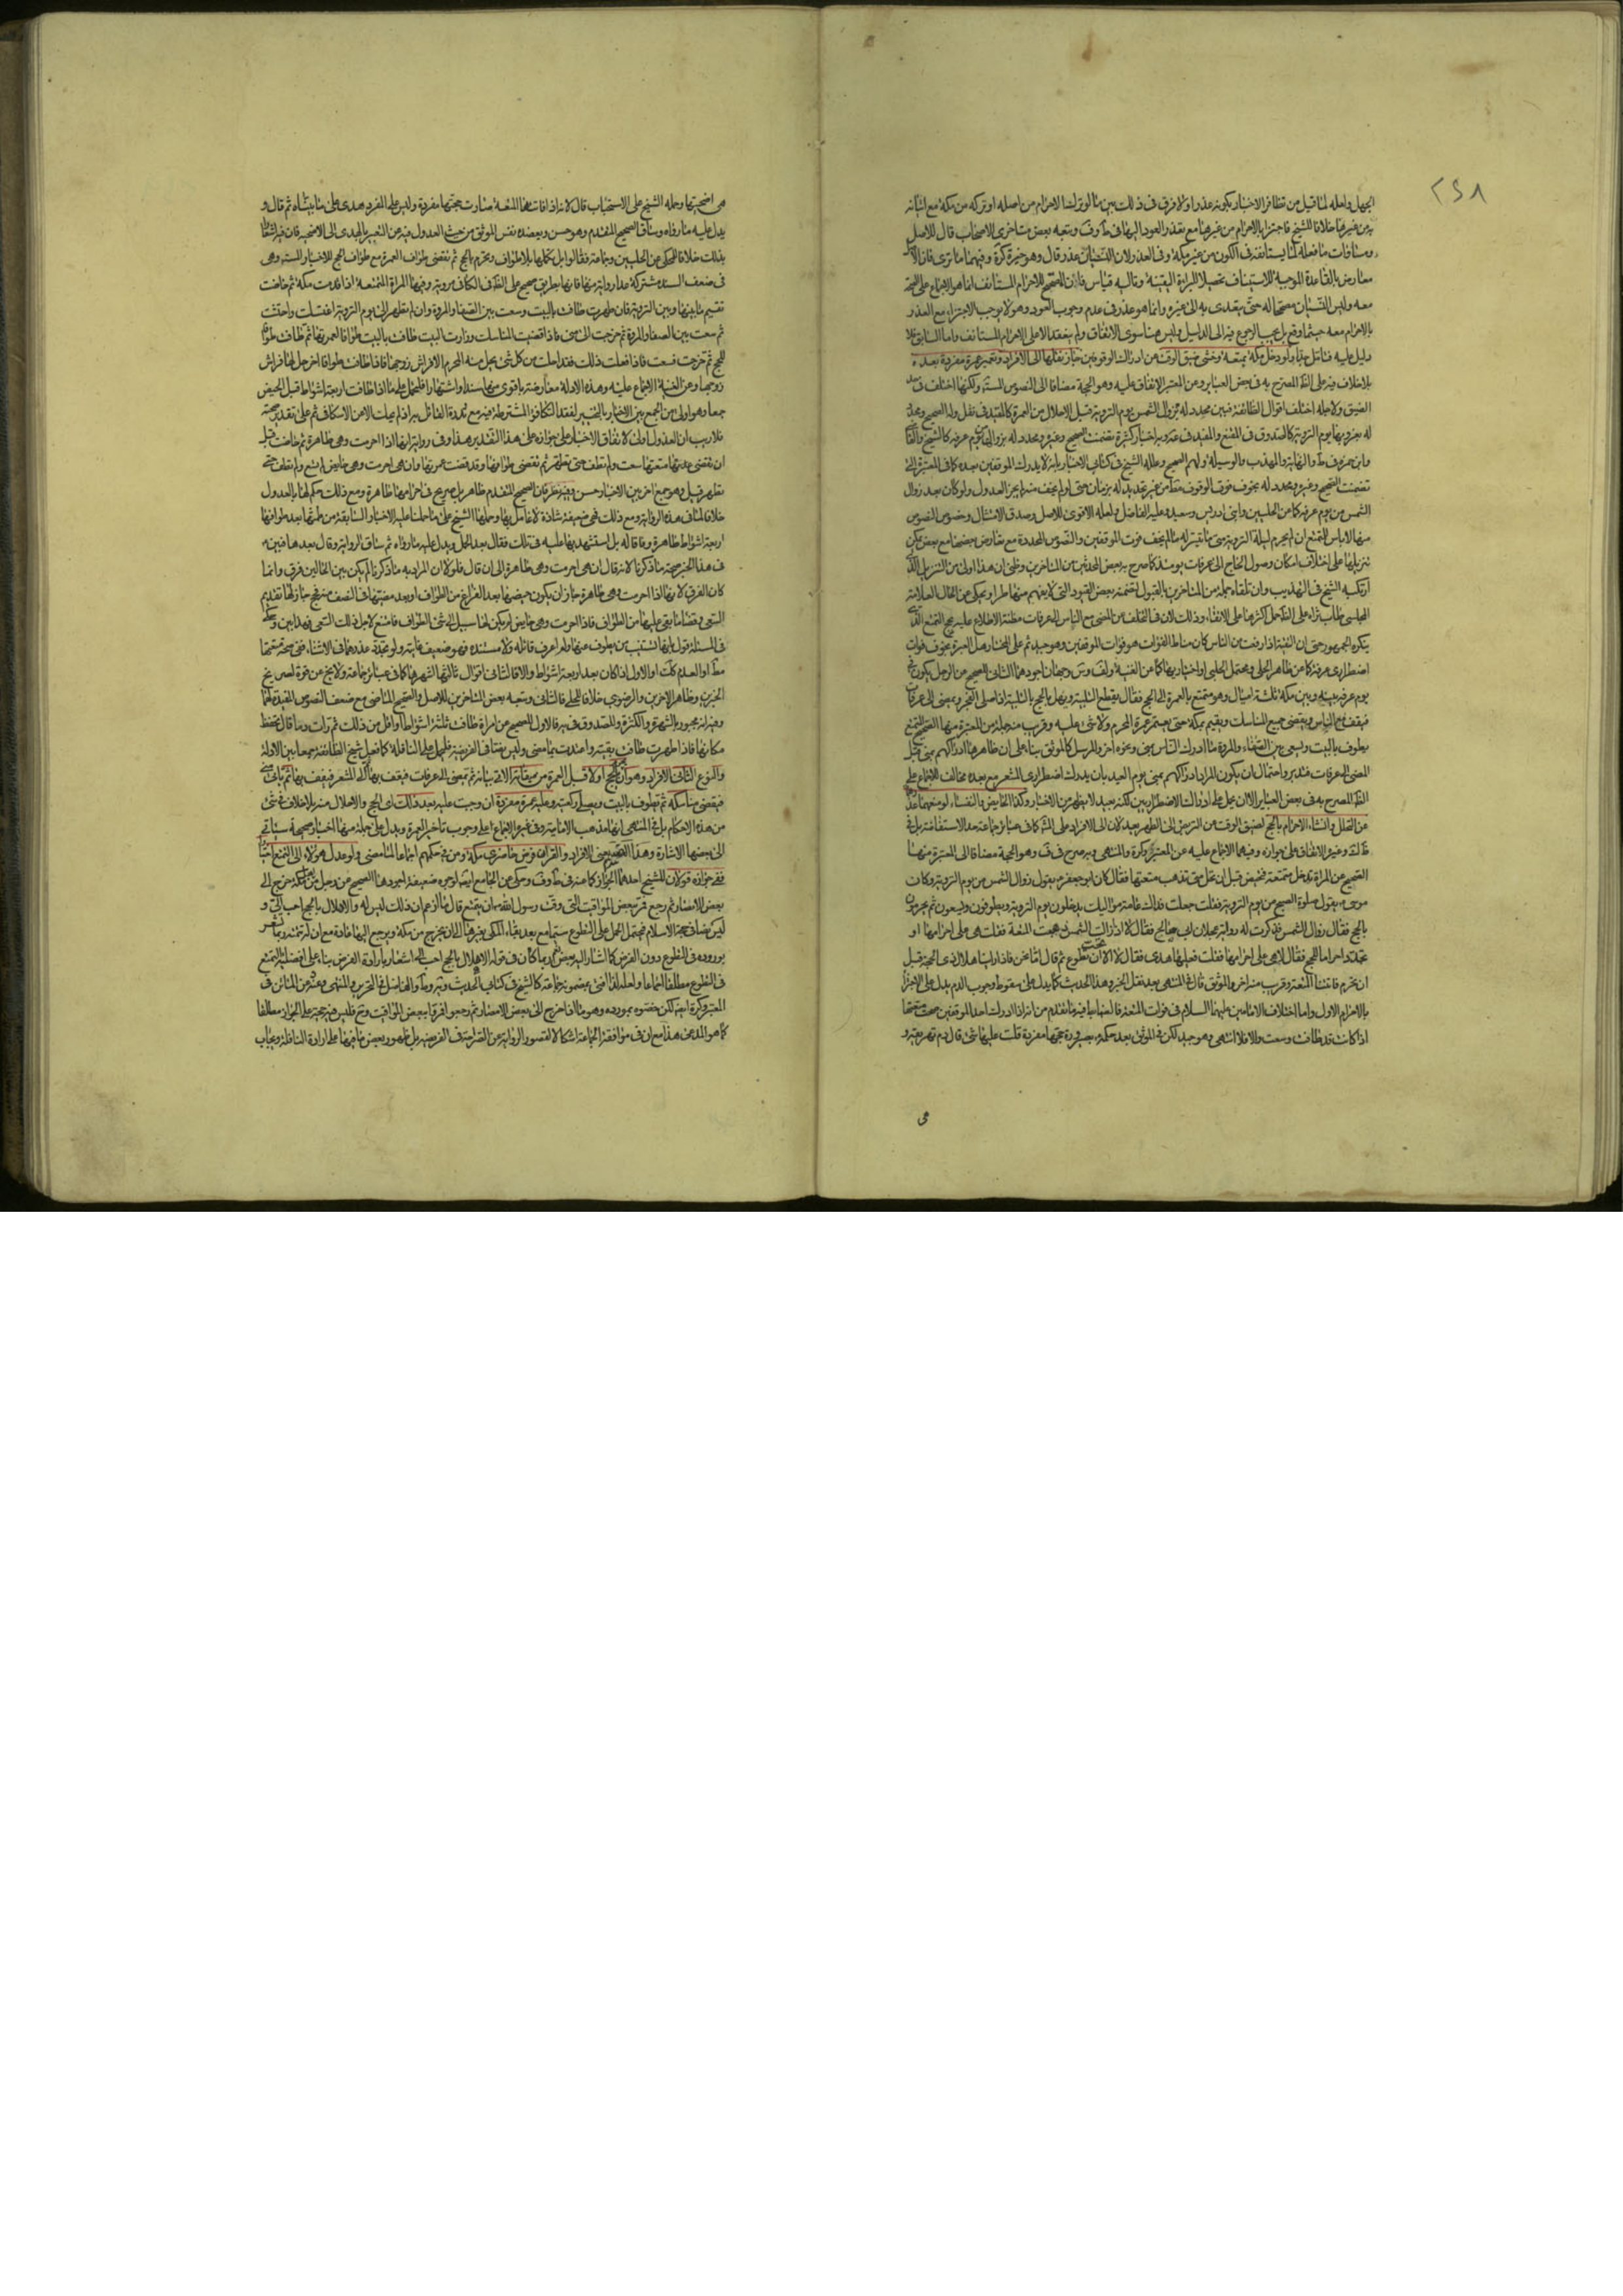 ٢٤٨
الجهل ولعله لما قيل من تظافر الاخبار بكونه عذرا ولا فرق فى ذلك بين ما لو ترك الاحرام من اصله او تركه من مكة مع اتيانه
به من غيرها خلافا للشيخ فاجتزا بالاحرام من غيرها مع تعذر العود اليها فى ط وف وتبعه بعض متاخرى الاصحاب قال للاصل
ومساوات ما فعله لما يستانفه فى الكون من غير مكة وفى العذر لان النسيان عذر قال وهو خيرة كره وفيهما ما ترى فان الاصل
معارض بالقاعدة الموجبة للاستيناف تحصيلا للبراءة اليقينية وقاليه قياس فان المصحح للاحرام المستانف انما هو الاجماع على الصحة
معه وليس النسيان مصححا له حتى يتعدى به الى غيره وانما هو عذر فى عدم وجوب العود وهو لا يوجب الاجتزاء مع العذر
بالاحرام معه حيثما وقع بل يجب الرجوع فيه الى الدليل وليس هنا سوى الاتفاق ولم ينعقد الا على الاحرام المستانف واما السابق فلا
دليل عليه فتامل جدا ولو دخل مكة بمتعة وخشى ضيق الوقت عن ادراك الوقوفين جاز نقلها الى الافراد وتعتمر عمرة مفردة بعده
بلا خلاف فيه على الظ المصرح به فى بعض العبائر وعن المعتبر الاتفاق عليه وهو الحجة مضافا الى النصوص المستفيضة ولكنها اختلف فى حد
الضيق ولاجله اختلف اقوال الطائفة فبين محدد له بزوال الشمس يوم التروية قبل الاحلال من العمرة كالمفيد فى نقل وله الصحيح ومحدد
له بغروبها يوم التروية كالصدوق فى المقنع والمفيد فى عة وبه اخبار كثيرة تضمنت الصحيح وغيره ومحدد له بزوال يوم عرفة كالشيخ والقاضى
وابن حمزة فى ط والنهاية والمهذب والوسيلة ولهم الصحيح وعلله الشيخ فى كتابى الاخبار بانه لا يدرك الموقفين بعده كما فى المعتبرة التى
تضمنت الصحيح وغيره ومحدد له بخوف فوت الوقوف مط من غير تحديد له بزمان حتى لو لم يخف منه لم يجز العدول ولو كان بعد زوال
الشمس من يوم عرفة كما عن الحلبيين وابنى ادريس وسعيد وعليه الفاضل ولعله الاقوى للاصل وصدق الامتثال وخصوص النصوص
منها لا باس للمتمتع ان لم يحرم ليلة التروية متى ما تيسر له ما لم يخف فوت الموقفين والنصوص المحددة مع تعارض بعضها مع بعض يمكن
تنزيلها على اختلاف امكان وصول الحاج الى عرفات يومئذ كما صرح به بعض المحدثين من المتاخرين وظنى ان هذا اولى من التنزيل الذى
ارتكبه الشيخ فى التهذيب وان تلقاه جملة من المتاخرين بالقبول لتضمنه بعض القيود التى لا يفهم منها طرا ويحكى عن الخال العلامة
المجلسى طاب ثراه على الظ حمل اكثرها على الاتقاء وذلك لان فى التخلف عن المضى مع الناس الى عرفات مظنة الاطلاع عليه بحج التمتع الذى
ينكره الجمهور حتى ان التقية اذا رفعت من الناس كان مناط الفوات هو فوات الموقفين وهو جيد ثم على المختار هل العبرة بخوف فوات
اضطرارى عرفة كما عن ظاهر الحلى ومحتمل الحلبى او اختياريها كما عن الغنية ولف وس وجهان اجودهما الثانى للصحيح عن الرجل يكون فى
يوم عرفة بينه وبين مكة ثلثة اميال وهو متمتع بالعمرة الى الحج فقال يقطع التلبية ويهل بالحج بالتلبية اذا صلى الفجر ويمضى الى عرفات
فيقف مع الناس ويقضى جميع المناسك ويقيم بمكة حتى يعتمر عمرة المحرم ولا شىء عليه وقريب منه جملة من المعتبرة منها الصحيح المتمتع
يطوف بالبيت ويسعى بين الصفاء والمروة ما ادرك الناس بمنى ونحوه اخر والمرسل كالموثق بناء على ان ظاهرها ادراكهم بمنى قبل
المضى الى عرفات فتدبر واحتمال ان يكون المراد ادراكهم بمنى يوم العيد بان يدرك اضطرارى المشعر مع بعده مخالف للاجماع على
الظ المصرح به فى بعض العبائر الا ان يحمل على ادراك الاضطراريين لكنه بعيد لا يظهر من الاخبار وكذا الحايض والنفساء لو منعهما عذرهما
عن التحلل وانشاء الاحرام بالحج لضيق الوقت عن التربص الى الطهر يعدلان الى الافراد على المشهور كما فى عبائر جماعة حد الاستفاضة بل فى
ف وكره وغيره الاتفاق على جوازه وفيهما الاجماع عليه عن المعتبر وكره والمنتهى وبه صرح فى ف وهو الحجة مضافا الى المعتبرة منها
الصحيح عن المراة تدخل متمتعة فتحيض قبل ان تحل متى تذهب متعتها فقال كان ابو جعفر م يقول زوال الشمس من يوم التروية وكان
موسى م يقول صلوة الصبح من يوم التروية فقلت جعلت فداك عامة مواليك يدخلون يوم التروية ويطوفون ويسعون ثم يحرمون
بالحج فقال زوال الشمس فذكرت له رواية عجلان ابى صالح فقال لا اذا زالت الشمس ذهبت المتعة فقلت هى على احرامها او
تجدد احراما للحج فقال لا هى على احرامها فقلت فعليها هدى فقال لا الا ان تحب ان تطوع ثم قال اما نحن فاذا راينا هلال ذى الحجة قبل
ان نحرم فاتتنا المتعة وقريب منه اخر والموثق قال فى المنتهى بعد نقل الخبر وهذا الحديث كما يدل على سقوط وجوب الدم يدل على الاجتزاء
بالاحرام الاول واما اختلاف الامامين عليهما السلام فى فوات المتعة فالضابط فيه ما تقدم من انه اذا ادرك احد الموقفين صحت متعتها
اذا كانت قد طافت وسعت والا فلا انتهى وهو جيد لكن فى الموثق بعد حكمه بصيرورة حجتها مفردة قلت عليها شىء قال دم تهريقه و
هى
هى اضحيتها وحمله الشيخ على الاستحباب قال لانه اذا فاتتها المتعة صارت حجتها مفردة وليس على المفرد هدى على ما بيناه ثم قال و
يدل عليه ما رواه وساق الصحيح المتقدم وهو حسن ويعضده نفس الموثق من حيث العدول فيه عن التعبير بالهدى الى الاضحية فان فيه اشعارا
بذلك خلافا للمحكى عن الحلبيين وجماعة فقالوا بل تكملها بلا طواف وتحرم بالحج ثم تقضى طواف العمرة مع طواف الحج للاخبار المستفيضة وهى
فى ضعف السند مشتركة عدا رواية منها فانها بطريق صحيح على الظ فى الكافى مروية وفيها المراة المتمتعة اذا قدمت مكة ثم حاضت
تقيم ما بينها وبين التروية فان طهرت طافت بالبيت وسعت بين الصفا والمروة وان لم تطهر الى يوم التروية اغتسلت واحتشت
ثم سعت بين الصفا والمروة ثم خرجت الى منى فاذا قضت المناسك وزارت البيت طافت بالبيت طوافا لعمرتها ثم طافت طوافا
للحج ثم خرجت فسعت فاذا فعلت ذلك فقد احلت من كل شىء يحل منه المحرم الا فراش زوجها فاذا طافت طوافا اخر حل لها فراش
زوجها وعن الغنية الاجماع عليه وهذه الادلة معارضة باقوى منها سندا واشتهارا فلتحمل على ما اذا طافت اربعة اشواط قبل الحيض
جمعا وهو اولى من الجمع بين الاخبار بالتخيير لفقد التكافؤ المشترط فيه مع ندرة القائل به اذ لم يحك الا عن الاسكافى ثم على تقدير صحته
فلا ريب ان العدول اولى لاتفاق الاخبار على جوازه على هذا التقدير هذا وفى رواية انها اذا احرمت وهى طاهرة ثم حاضت قبل
ان تقضى متعتها سعت ولم تطف حتى تطهر ثم تقضى طوافها وقد قضت عمرتها وان هى احرمت وهى حايض لم تسع ولم تطف حتى
تطهر قيل وهو جمع اخر بين الاخبار حسن وفيه نظر فان الصحيح المتقدم ظاهر بل صريح فى احرامها طاهرة ومع ذلك حكم لها بالعدول
خلافا لما فى هذه الرواية ومع ذلك فهى ضعيفة شاذة لا عامل بها وحملها الشيخ على ما حملنا عليه الاخبار السابقة من طمثها بعد طوافها
اربعة اشواط طاهرة وفاقا له بل استشهد بها عليه فى تلك فقال بعد الحمل ويدل عليه ما رواه ثم ساق الرواية وقال بعدها فبين م
فى هذا الخبر صحة ما ذكرنا لانه قال ان هى احرمت وهى طاهرة الى ان قال فلولا ان المراد به ما ذكرنا لم يكن بين الحالين فرق وانما
كان الفرق لانها اذا احرمت وهى طاهرة جاز ان يكون حيضها بعد الفراغ من الطواف او بعد مضيها فى النصف منه فح جاز لها تقديم
السعى وقضاء ما بقى عليها من الطواف فاذا احرمت وهى حايض لم يكن لها سبيل الى شىء الطواف فامتنع لاجل ذلك السعى
فى المسئلة قول بانها تستنيب من يطوف عنها ولم اعرف قائله ولا مستنده فهو ضعيف غايته ولو تجدد عذرهما فى الاثناء ففى صحة متعتها
مط او العدم كك او الاول اذا كان بعد اربعة اشواط والا فالثانى اقوال ثالثها اشهرها كما فى عبائر جماعة ولا يخلو عن قوة لصريح
الخبرين وظاهر الاخرين والرضوى خلافا للحلى فالثانى وتبعه بعض المتاخرين للاصل والصحيح الماضى مع ضعف النصوص المقيدة لهما
وفيه انه مجبور بالشهرة والكثرة وللصدوق فى يه فالاول للصحيح عن امراة طافت ثلثة اشواط او اقل من ذلك ثم رات دما قال تحفظ
مكانها فاذا طهرت طافت بقيته واعتدت بما مضى وليس بمناف الفريضة فليحمل على النافلة كما فعل شيخ الطائفة جمعا بين الادلة
والنوع الثانى الافراد وهو ان يحج اولا قبل العمرة من ميقاته الاتى بيانه ثم يمضى الى عرفات فيقف بها ثم الى المشعر فيقف بها ثم ياتى منى
فيقضى مناسكه ثم يطوف بالبيت ويصلى ركعتيه وعليه عمرة مفردة ان وجبت عليه بعد ذلك اى الحج والاحلال منه بلا خلاف فى شىء
من هذه الاحكام بل فى المنتهى انها مذهب الامامية وفى غيره الاجماع على وجوب تاخير العمرة ويدل على جملة منها اخبار صحيحة سياتى
الى بعضها الاشارة وهذا القسم يعنى الافراد والقران فرض حاضرى مكة ومن فى حكمهم اجماعا لما مضى ولو عدل هؤلاء الى التمتع اختيارا
ففى جوازه قولان للشيخ احدهما الجواز كما عنه فى ط وف وحكى عن الجامع ايضا لوجوه ضعيفة اجودها الصحيح عن رجل من اهل مكة خرج الى
بعض الامصار ثم رجع فمر ببعض المواقيت التى وقت رسول الله ص ان يتمتع قال ما ازعم ان ذلك ليس له والاهلال بالحج احب الى و
ليس نصا فى حجة الاسلام فيحتمل الحمل على التطوع سيما مع بعد بقاء المكى بغير حج الى ان يخرج من مكة ويرجع اليها عادة مع ان له تتمة ربما تشعر
بوروده فى التطوع دون الفرض كما اشار اليه بعض نعم ربما كان فى قوله الاهلال بالحج احب الى اشعار بارادة الفرض بناء على افضلية التمتع
فى التطوع مطلقا اجماعا ولعله لذا افتى بمضمونه جماعة كالشيخ فى كتابى الحديث ويه وط والفاضل فى التحرير والمنتهى وغيره من المتاخرين فى
المعتبر وكره ايضا لكن خصوه بمورده وهو ما اذا خرج الى بعض الامصار ثم رجعوا فمروا ببعض المواقيت ومع فليس فيه حجة على الجواز مطلقا
كما هو المدعى هذا مع ان فى موافقة الجماعة اشكالا لقصور الرواية عن الصراحة فى الفريضة بل ظهور بعض ما فيها على ارادة النافلة ويجاب